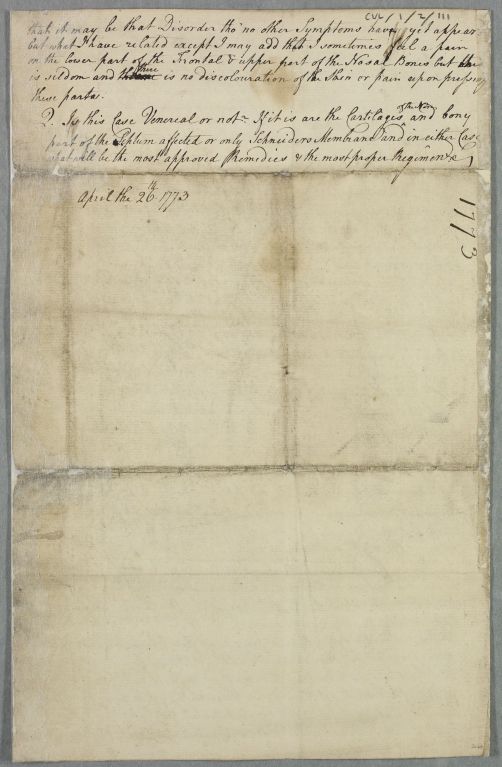 CUL/1/2/111
that it may be that Disorder tho' no other Symptoms have yet appear
but what I have related except I may add that I sometimes feel a pain
on the lower part of the Frontal & upper part of the Nasal Bones but this
is seldom and there is no discolouration of the Skin or pain upon pressing
these parts.
Q. Is this Case Venereal or not? If it is are the Cartilages of the Nose and bony
part of the Septum affected or only Schneiders Membrane and in either Case
what will be the most approved Remedies & the most proper Regimen &c
April the 26th 1773
1773